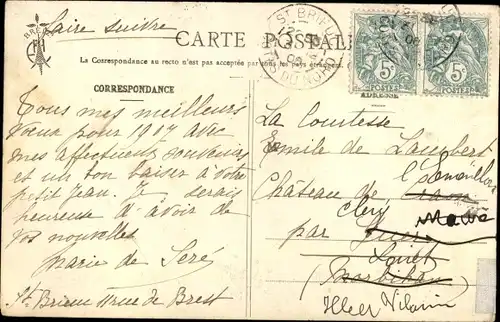 Faire suivre
CARTE POSTALE
La Correspondance au recto n'est pas acceptée par tous les pays étrangers.
CORRESPONDANCE
ADRESSE
ST BRIEUC
CÔTES DU NORD
5 POSTES 5 POSTES
Tous mes meilleurs
voeux pour 1907 avec
mes affectueux souvenirs
et un bon baiser à votre
petit Jean. Je serais
heureuse d'avoir de
vos nouvelles
Marie de
St. Brieuc 11 rue de Brest
La Comtesse
Emile de Lambert
Château de
Cléry
par
Loiret
(Morbihan)
Ille et Vilaine